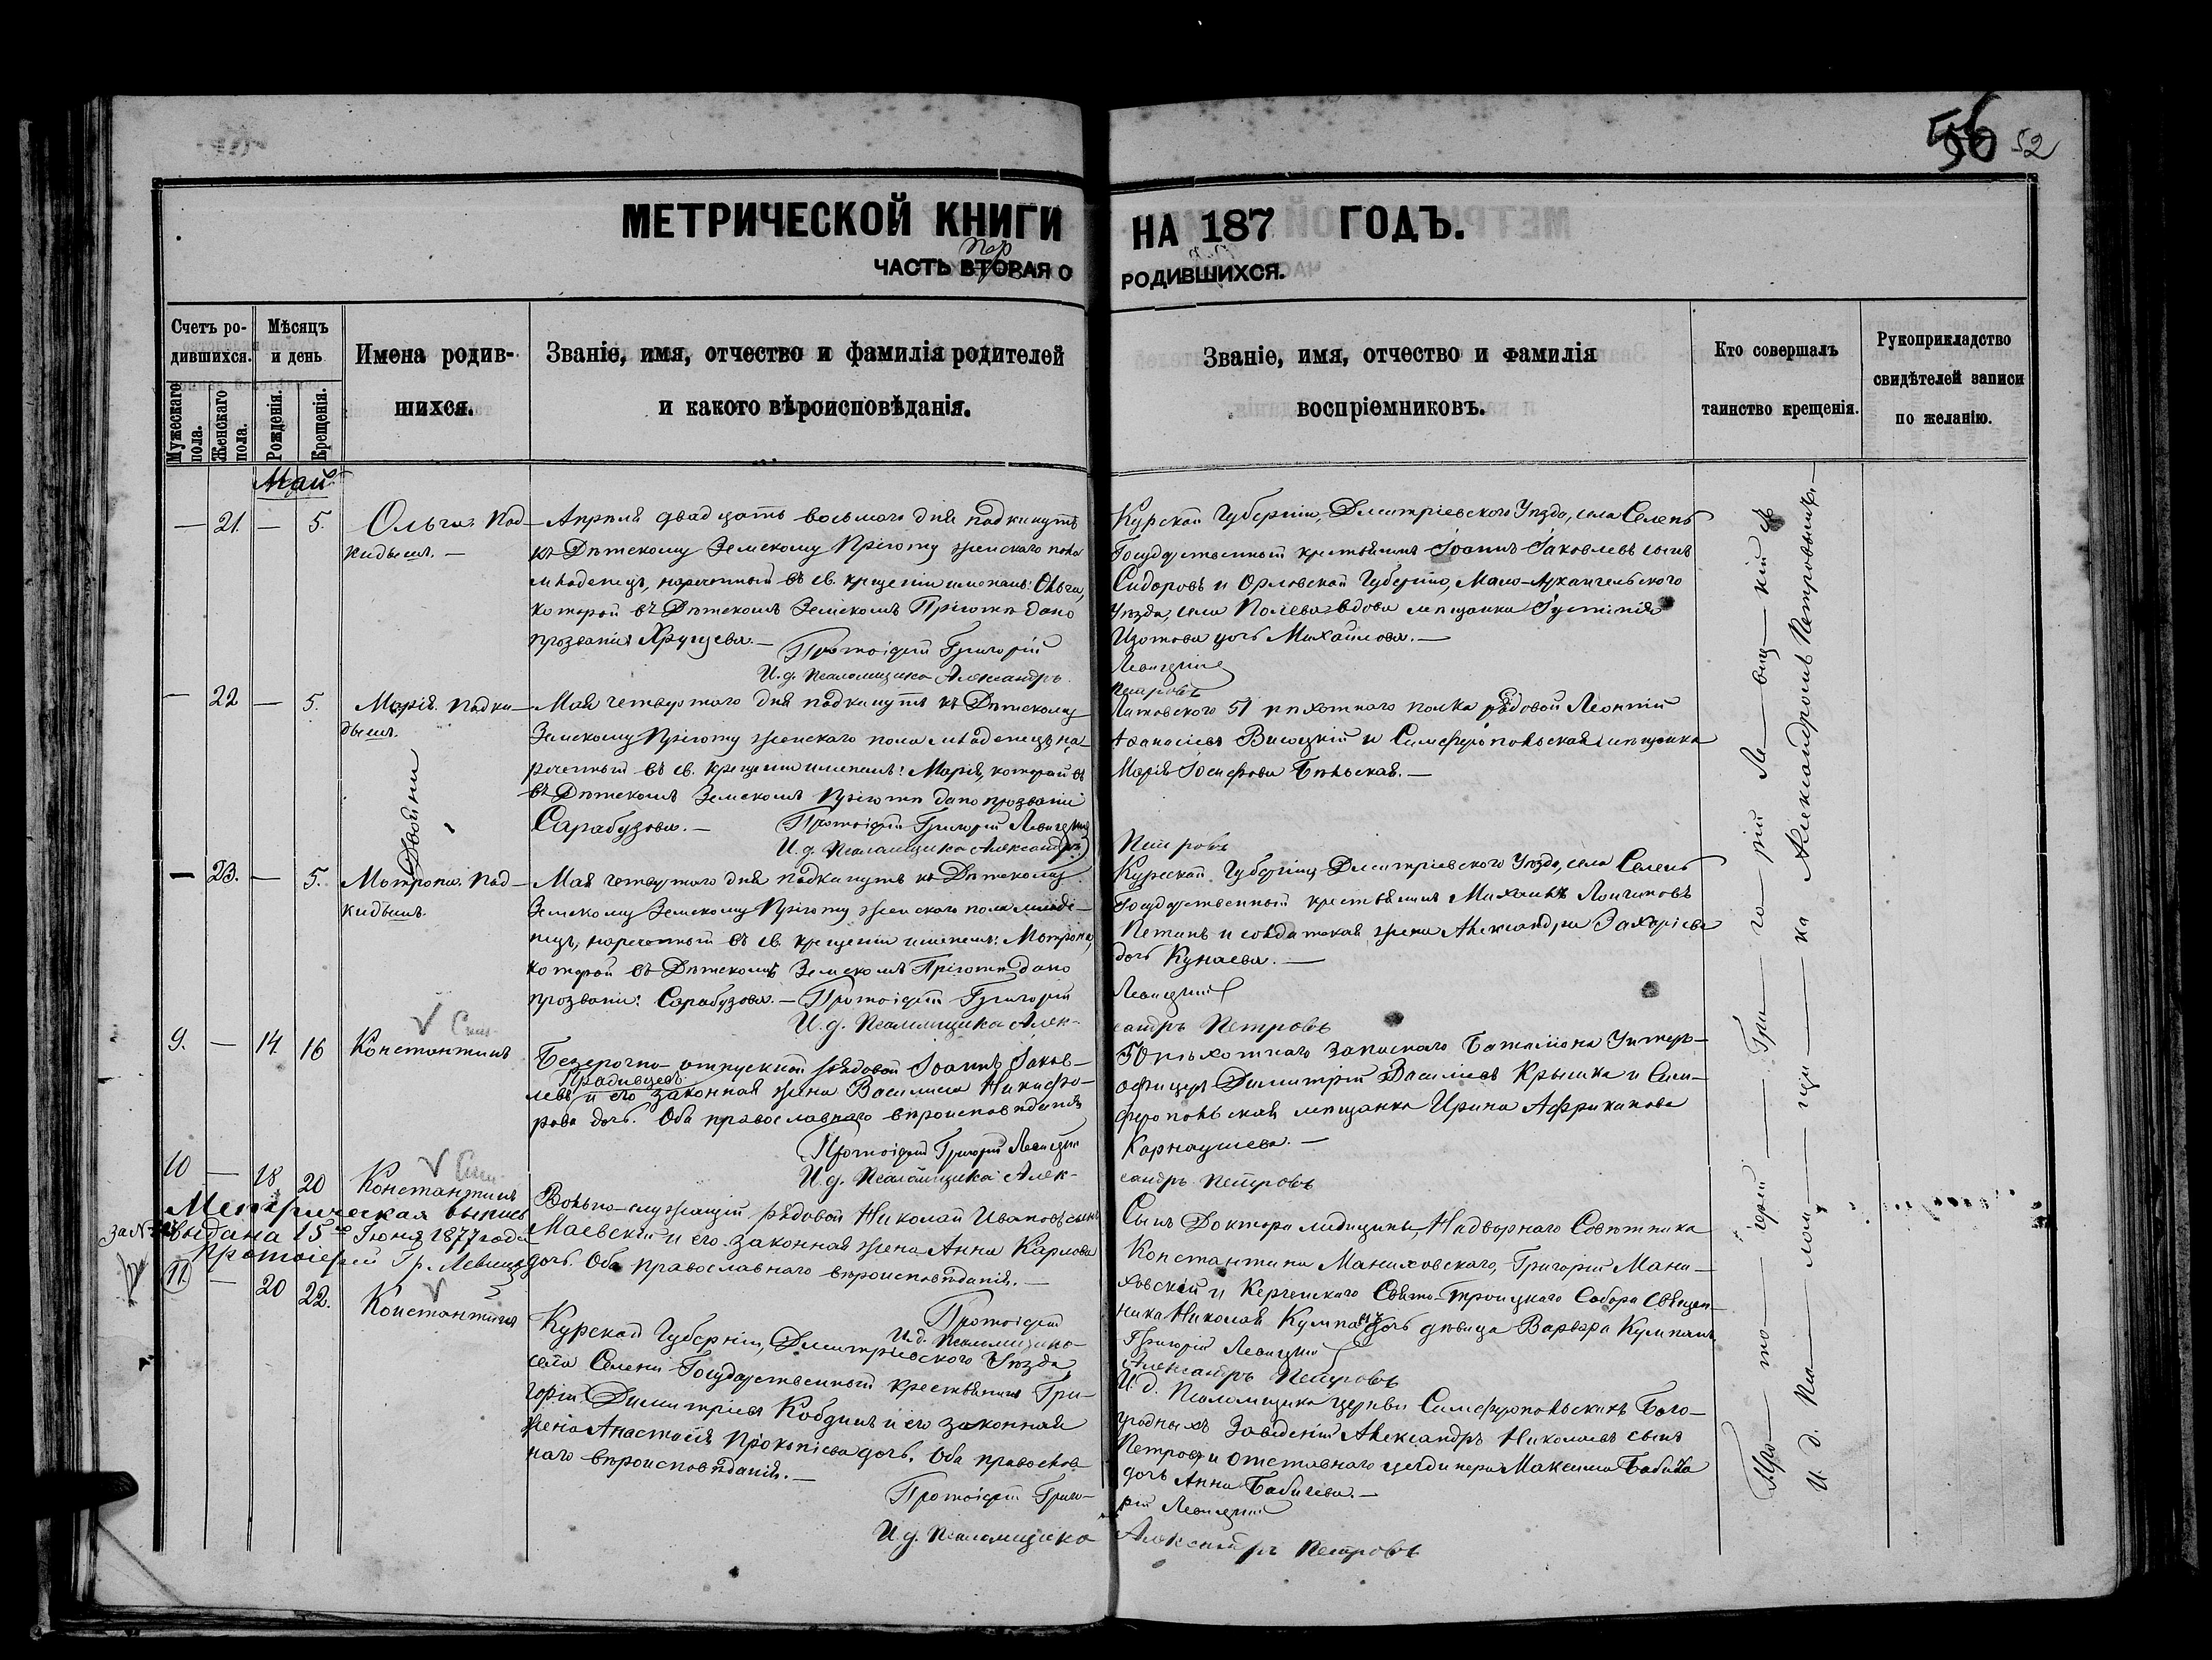 56 52
МЕТРИЧЕСКОЙ КНИГИ НА 187 ГОДЪ.
пер
ЧАСТЬ ВТОРАЯ О РОДИВШИХСЯ.
Счетъ родившихся.
Мужескаго пола.
Женскаго пола.
Мѣсяцъ и день
Рожденія.
Крещенія.
Имена родившихся.
Званіе, имя, отчество и фамилія родителей
и какого вѣроисповѣданія.
Званіе, имя, отчество и фамилія
воспріемниковъ.
Кто совершалъ
таинство крещенія.
Рукоприкладство
свидѣтелей записи
по желанію.
Май
— 21. — 5.
Ольга. Под-
кидышъ. —
Апрѣля двадцать восьмого дня подкинутъ
къ Дѣтскому Земскому Пріюту женскаго пола
младенецъ, нареченный въ св. крещеніи именемъ: Ольга,
которой въ Дѣтскомъ Земскомъ Пріютѣ дано
прозваніе Хрущева. —
Протоіерей Григорій
И. д. Псаломщика Александръ
Курской Губерніи, Дмитріевского Уѣзда, села Селень
Государственный крестьянинъ Іоаннъ Іаковлевъ сынъ
Сидоровъ и Орловской Губерніи, Мало-Архангельского
Уѣзда, села Полева вдова мѣщанка Іустинія
Изотова дочь Михайлова. —
Левицкій
Петровъ
— 22 — 5.
Марія. Подки-
дышъ.
Двойни
Мая четвертого дня подкинутъ къ Дѣтскому
Земскому Пріюту женскаго пола младенецъ, на-
реченный въ св. крещеніи именемъ: Марія, которой въ
въ Дѣтскомъ Земскомъ Пріютѣ дано прозваніе
Сарабузова. —
Протоіерей Григорій Левицкій
И. д. Псаломщика Александръ
Литовского 51 пѣхотнаго полка рядовой Леонтій
Аѳанасіевъ Высоцкій и Симферопольская мѣщанка
Марія Іосифова Бѣльская. —
Петровъ
— 23. — 5.
Матрона. Под-
кидышъ.
Мая четвертого дня подкинутъ къ Дѣтскому
Земскому Земскому Пріюту женскаго пола младе-
нецъ, нареченный въ св. крещеніи именемъ: Матрона,
которой въ Дѣтскомъ Земскомъ Пріютѣ дано
прозваніе: Сарабузова. — Протоіерей Григорій
И. д. Псаломщика Алек-
Курской Губерніи, Дмитріевского Уѣзда, села Селень
Государственный крестьянинъ Михаилъ Логиновъ
Петинъ и солдатская жена Александра Захаріева
дочь Кунаева. —
Левицкій
сандръ Петровъ
9. — 14 16
Константинъ
Безсрочно-отпускной рядовой Іоаннъ Іаков-
левъ и его законная жена Василиса Никифо-
рова дочь. Оба православнаго вѣроисповѣданія
Протоіерей Григорій Левицкій
И. д. Псаломщика Алек-
50 пѣхотнаго запаснаго баталіона Унтеръ-
офицеръ Димитрій Василіевъ Крышка и Сим-
феропольская мѣщанка Ирина Африканова
Карнаушева. —
сандръ Петровъ
10 — 18 20
Константинъ
Метрическая выпись
за № выдана 15го Іюня 1877 года
Протоіерей Гр. Левицкій
Вольно-служащій рядовой Николай Ивановъ сынъ
Маевскій и его законная жена Анна Карлова
дочь. Оба православнаго вѣроисповѣданія. —
Протоіерей
И. д. Псаломщика
Сынъ Доктора медицины, Надворнаго Совѣтника
Константина Маниховскаго, Григорій Мани-
ховскій и Керченскаго Свято-Троицкаго Собора Священ-
ника Николая Кумпанъ дочь дѣвица Варвара Кумпанъ
Григорій Левицкій
Александръ Петровъ
11. — 20 22.
Константинъ
Курской Губерніи, Дмитріевского Уѣзда
села Селени Государственный крестьянинъ Гри-
горій Димитріевъ Кобдинъ и его законная
жена Анастасія Прокопіева дочь. Оба православ-
наго вѣроисповѣданія. —
Протоіерей Григо-
И. д. Псаломщика
И. д. Псаломщика церкви Симферопольскихъ Бого-
угодныхъ Заведеній Александръ Николаевъ сынъ
Петровъ и отставного Максима Бабича
дочь Анна Бабичева. —
рій Левицкій
Александръ Петровъ
Про—то—іерей—Гри—го—рій Ле—виц—кій
И. д. Пса—лом—щи—ка Александромъ Петровымъ. —